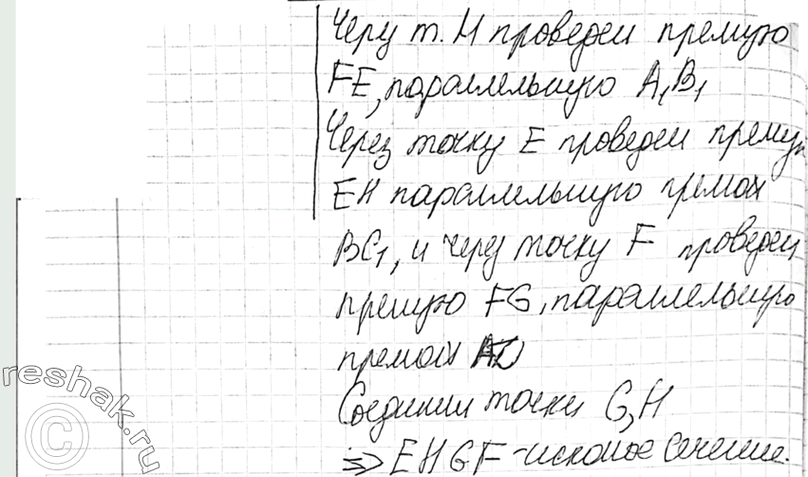 Через т. М проведем прямую
FE, параллельную A₁B₁
Через точку E проведем прямую
EH параллельную прямой
BC₁, и через точку F проведем
прямую FG, параллельную
прямой
Соединим точки G, H
=> EHGF - искомое сечение.
reshak.ru
©